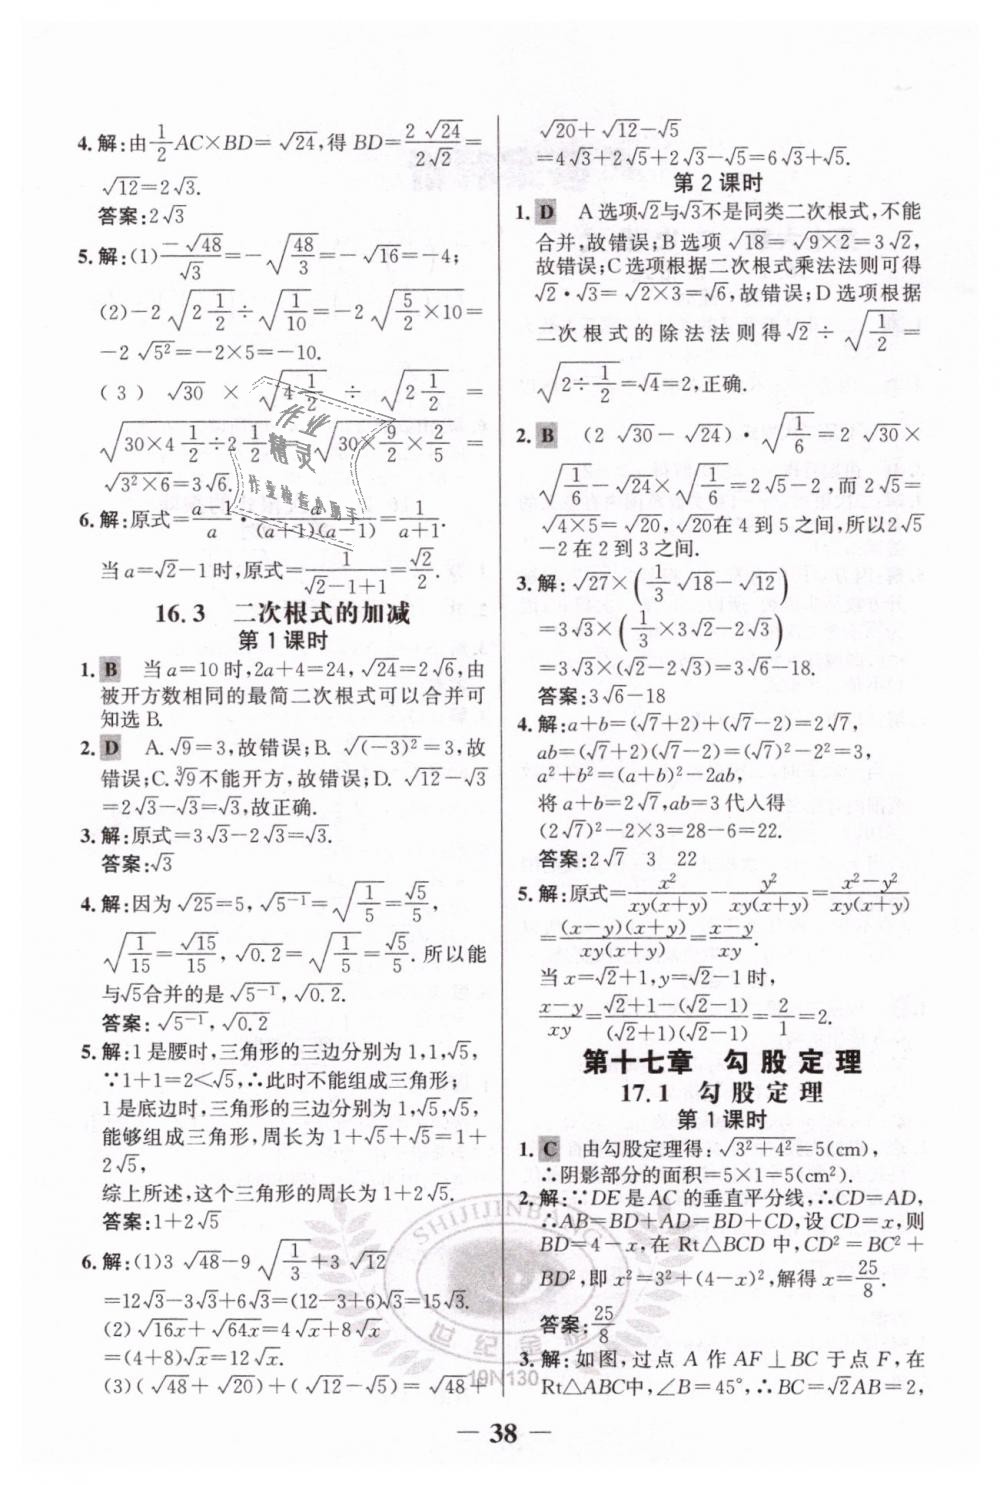 4. 解:由$\frac{1}{2}$AC×BD=$\sqrt{24}$,得 BD=$\frac{2\sqrt{24}}{2\sqrt{2}}$=
$\sqrt{12}$=2$\sqrt{3}$.
答案:2$\sqrt{3}$
5. 解:(1)$\frac{-\sqrt{48}}{\sqrt{3}}$=-$\sqrt{\frac{48}{3}}$=-$\sqrt{16}$=-4;
(2)-2$\sqrt{2\frac{1}{2}}$÷$\sqrt{\frac{1}{10}}$=-2$\sqrt{\frac{5}{2}×10}$=
-2$\sqrt{5^2}$=-2×5=-10.
(3)$\sqrt{30}$×$\sqrt{4\frac{1}{2}}$÷$\sqrt{2\frac{1}{2}}$=
$\sqrt{30×4\frac{1}{2}÷2\frac{1}{2}}$=$\sqrt{30×\frac{9}{2}×\frac{2}{5}}$=
$\sqrt{3^2×6}$=3$\sqrt{6}$.
6. 解:原式=$\frac{a-1}{a}$·$\frac{a}{(a+1)(a-1)}$=$\frac{1}{a+1}$.
当 a=$\sqrt{2}$-1时,原式=$\frac{1}{\sqrt{2}-1+1}$=$\frac{\sqrt{2}}{2}$.
16.3 二次根式的加减
第1课时
1. B 当 a=10 时,2a+4=24,$\sqrt{24}$=2$\sqrt{6}$,由
被开方数相同的最简二次根式可以合并可
知选 B.
2. D A.$\sqrt{9}$=3,故错误;B.$\sqrt{(-3)^2}$=3,故
错误;C.$\sqrt[3]{9}$不能开方,故错误;D.$\sqrt{12}$-$\sqrt{3}$
=2$\sqrt{3}$-$\sqrt{3}$=$\sqrt{3}$,故正确.
3. 解:原式=3$\sqrt{3}$-2$\sqrt{3}$=$\sqrt{3}$.
答案:$\sqrt{3}$
4. 解:因为$\sqrt{25}$=5,$\sqrt{5^{-1}}$=$\sqrt{\frac{1}{5}}$=$\frac{\sqrt{5}}{5}$,
$\sqrt{\frac{1}{15}}$=$\frac{\sqrt{15}}{15}$,$\sqrt{0.2}$=$\sqrt{\frac{1}{5}}$=$\frac{\sqrt{5}}{5}$.所以能
与$\sqrt{5}$合并的是$\sqrt{5^{-1}}$,$\sqrt{0.2}$.
答案:$\sqrt{5^{-1}}$,$\sqrt{0.2}$
5. 解:1是腰时,三角形的三边分别为1,1,$\sqrt{5}$,
∵1+1=2<$\sqrt{5}$,∴此时不能组成三角形;
1是底边时,三角形的三边分别为1,$\sqrt{5}$,$\sqrt{5}$,
能够组成三角形,周长为1+$\sqrt{5}$+$\sqrt{5}$=1+
2$\sqrt{5}$,
综上所述,这个三角形的周长为1+2$\sqrt{5}$.
答案:1+2$\sqrt{5}$
6. 解:(1)3$\sqrt{48}$-9$\sqrt{\frac{1}{3}}$+3$\sqrt{12}$
=12$\sqrt{3}$-3$\sqrt{3}$+6$\sqrt{3}$=(12-3+6)$\sqrt{3}$=15$\sqrt{3}$.
(2)$\sqrt{16x}$+$\sqrt{64x}$=4$\sqrt{x}$+8$\sqrt{x}$
=(4+8)$\sqrt{x}$=12$\sqrt{x}$.
(3)($\sqrt{48}$+$\sqrt{20}$)+($\sqrt{12}$-$\sqrt{5}$)=$\sqrt{48}$+
$\sqrt{20}$+$\sqrt{12}$-$\sqrt{5}$
=4$\sqrt{3}$+2$\sqrt{5}$+2$\sqrt{3}$-$\sqrt{5}$=6$\sqrt{3}$+$\sqrt{5}$.
第2课时
1. D A选项$\sqrt{2}$与$\sqrt{3}$不是同类二次根式,不能
合并,故错误;B选项$\sqrt{18}$=$\sqrt{9×2}$=3$\sqrt{2}$,
故错误;C选项根据二次根式乘法法则可得
$\sqrt{2}$·$\sqrt{3}$=$\sqrt{2×3}$=$\sqrt{6}$,故错误;D选项根据
二次根式的除法法则得$\sqrt{2}$÷$\sqrt{\frac{1}{2}}$=
$\sqrt{2÷\frac{1}{2}}$=$\sqrt{4}$=2,正确.
2. B (2$\sqrt{30}$-$\sqrt{24}$)·$\sqrt{\frac{1}{6}}$=2$\sqrt{30}$×
$\sqrt{\frac{1}{6}}$-$\sqrt{24}$×$\sqrt{\frac{1}{6}}$=2$\sqrt{5}$-2,而2$\sqrt{5}$=
$\sqrt{4×5}$=$\sqrt{20}$,$\sqrt{20}$在4到5之间,所以2$\sqrt{5}$
-2在2到3之间.
3. 解:$\sqrt{27}$×($\frac{1}{3}\sqrt{18}$-$\sqrt{12}$)
=3$\sqrt{3}$×($\frac{1}{3}$×3$\sqrt{2}$-2$\sqrt{3}$)
=3$\sqrt{3}$×($\sqrt{2}$-2$\sqrt{3}$)=3$\sqrt{6}$-18.
答案:3$\sqrt{6}$-18
4. 解:a+b=($\sqrt{7}$+2)+($\sqrt{7}$-2)=2$\sqrt{7}$,
ab=($\sqrt{7}$+2)($\sqrt{7}$-2)=($\sqrt{7}$)²-2²=3,
a²+b²=(a+b)²-2ab,
将 a+b=2$\sqrt{7}$,ab=3代入得
(2$\sqrt{7}$)²-2×3=28-6=22.
答案:2$\sqrt{7}$ 3 22
5. 解:原式=$\frac{x^2}{xy(x+y)}$-$\frac{y^2}{xy(x+y)}$=$\frac{x^2-y^2}{xy(x+y)}$
=$\frac{(x-y)(x+y)}{xy(x+y)}$=$\frac{x-y}{xy}$.
当 x=$\sqrt{2}$+1,y=$\sqrt{2}$-1时,
$\frac{x-y}{xy}$=$\frac{\sqrt{2}+1-(\sqrt{2}-1)}{(\sqrt{2}+1)(\sqrt{2}-1)}$=$\frac{2}{1}$=2.
第十七章 勾股定理
17.1 勾股定理
第1课时
1. C 由勾股定理得:$\sqrt{3^2+4^2}$=5(cm),
∴阴影部分的面积=5×1=5(cm²).
2. 解:∵DE是AC的垂直平分线,∴CD=AD,
∴AB=BD+AD=BD+CD,设CD=x,则
BD=4-x,在Rt△BCD中,CD²=BC²+
BD²,即x²=3²+(4-x)²,解得x=$\frac{25}{8}$.
答案:$\frac{25}{8}$
3. 解:如图,过点A作AF⊥BC于点F,在
Rt△ABC中,∠B=45°,∴BC=$\sqrt{2}$AB=2,
作业
精灵
作业检查小助手
SHIJIJINBANG
世纪金榜
19N130
— 38 —